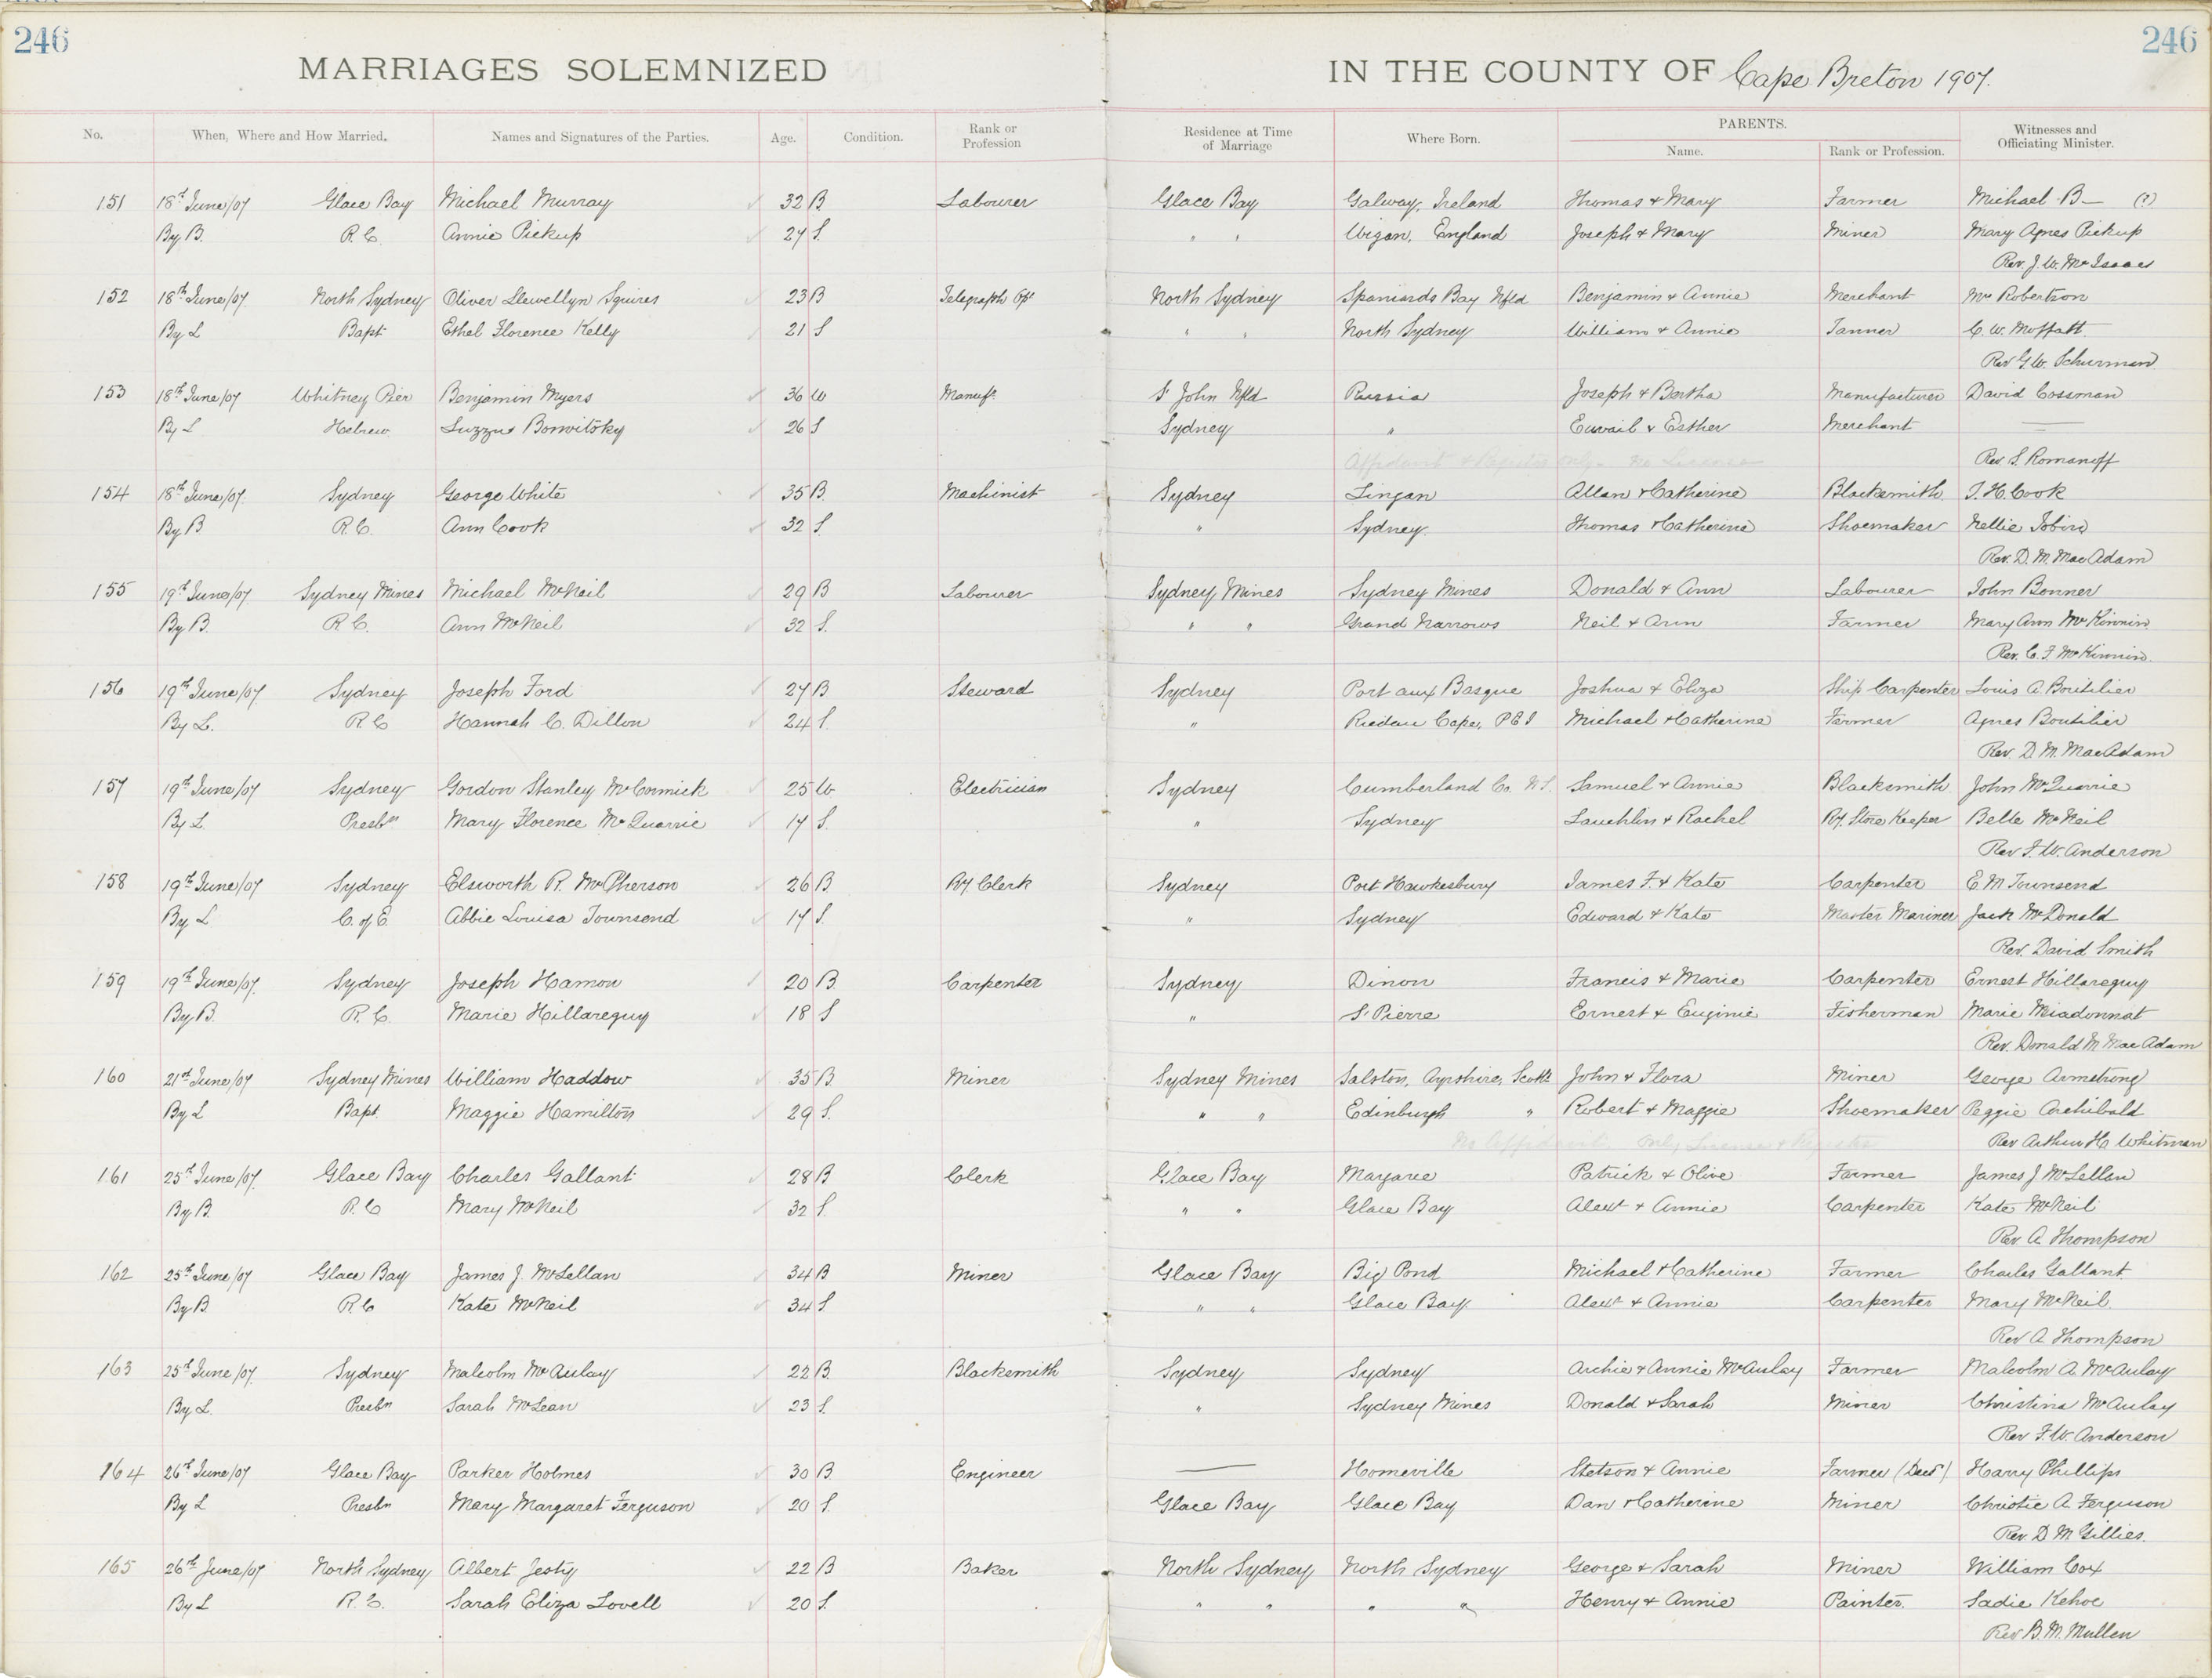 246
246
MARRIAGES SOLEMNIZED
IN THE COUNTY OF Cape Breton 1907.
No. When, Where and How Married. Names and Signatures of the Parties. Age. Condition. Rank or Profession Residence at Time of Marriage Where Born. PARENTS. Name. Rank or Profession. Witnesses and Officiating Minister.
151 18th June/07 Glace Bay Michael Murray 32 B Labourer Glace Bay Galway, Ireland Thomas & Mary Farmer Michael B— (?)
By B. R.C. Annie Pickup 27 S. " " Wigan, England Joseph & Mary Miner Mary Agnes Pickup
Rev. J. W. McIsaac
152 18th June/07 North Sydney Oliver Llewellyn Squires 23 B Telegraph Opr North Sydney Spaniards Bay Nfld Benjamin & Annie Merchant Robertson
By L Bapt Ethel Florence Kelly 21 S " " North Sydney William & Annie Tanner C. W. Moffatt
Rev G. W. Schurman
153 18th June/07 Whitney Pier Benjamin Myers 36 W Manufr. St John Nfld Russia Joseph & Bertha Manufacturer David Cossman
By L Hebrew 26 S Sydney " & Esther Merchant —
Affidavit & Register only. No License Rev. S. Romanoff
154 18th June/07. Sydney George White 35 B. Machinist Sydney Lingan Allan & Catherine Blacksmith J. H. Cook
By B R.C. Ann Cook 32 S. " Sydney. Thomas & Catherine Shoemaker Nellie Tobin
Rev. D. M. MacAdam
155 19th June/07 Sydney Mines Michael McNeil 29 B Labourer Sydney Mines Sydney Mines Donald & Ann Labourer John Bonner
By B. R C. Ann McNeil 32 S. " " Grand Narrows Neil & Ann Farmer Mary Ann McKinnin
Rev. C. F. McKinnin.
156 19th June/07. Sydney Joseph Ford 27 B Steward Sydney Port aux Basque Joshua & Eliza Ship Carpenter Louis A. Boutilier
By L. R.C Hannah C. Dillon 24 S. " Cape, PEI Michael & Catherine Farmer Agnes Boutilier
Rev. D. M. MacAdam
157 19th June/07 Sydney Gordon Stanley McCormick 25 W Electrician Sydney Cumberland Co. N.S. Samuel & Annie Blacksmith John McQuarrie
By L. Presbn Mary Florence McQuarrie 17 S. " Sydney Lauchlin & Rachel Ry. Store Keeper Belle McNeil
Rev F. W. Anderson
158 19th June/07 Sydney Elsworth R. McPherson 26 B. Ry Clerk Sydney Port Hawkesbury James F. & Kate Carpenter E. M Townsend
By L C. of E. Abbie Louisa Townsend 17 S. " Sydney Edward & Kate Master Mariner Jack McDonald
Rev. David Smith
159 19th June/07. Sydney Joseph Hamon 20 B. Carpenter Sydney Dinon Francis & Marie Carpenter Ernest Hillareguy
By B. R.C. Marie Hillareguy 18 S " St Pierre Ernest & Euginie Fisherman Marie Miadonnat
Rev. Donald M MacAdam
160 21st June/07 Sydney Mines William Haddow 35 B Miner Sydney Mines Salston, Ayrshire, Scotld John & Flora Miner George Armstrong
By L Bapt. Maggie Hamilton 29 S. " " Edinburgh " Robert & Maggie Shoemaker Peggie Archibald
No Affidavit. Only License & Register Rev Arthur H. Whitman
161 25th June/07. Glace Bay Charles Gallant 28 B Clerk Glace Bay Margaree Patrick & Olive Farmer James J. McLellan
By B. R.C Mary McNeil 32 S. " " Glace Bay Alexr & Annie Carpenter Kate McNeil
Rev A. Thompson
162 25th June/07 Glace Bay James J. McLellan 34 B Miner Glace Bay Big Pond Michael & Catherine Farmer Charles Gallant.
By B. R.C Kate McNeil 34 S. " " Glace Bay. Alexr & Annie Carpenter Mary McNeil.
Rev A. Thompson
163 25th June/07. Sydney Malcolm McAulay 22 B. Blacksmith Sydney Sydney Archie & Annie McAulay Farmer Malcolm A. McAulay
By L. Presbn Sarah McLean 23 S. " Sydney Mines Donald & Sarah Miner Christina McAulay
Rev F. W. Anderson
164 26th June/07 Glace Bay Parker Holmes 30 B. Engineer — Homeville Stetson & Annie Farmer (Decd) Harry Phillips
By L Presbn Mary Margaret Ferguson 20 S. Glace Bay Glace Bay Dan & Catherine Miner Christie A. Ferguson
Rev. D M Gillies.
165 26th June/07 North Sydney Albert Jesty 22 B Baker North Sydney North Sydney George & Sarah Miner William Cox
By L R.C. Sarah Eliza Lovell 20 S. " " " " Henry & Annie Painter. Sadie Kehoe
Rev B. M. Mullen